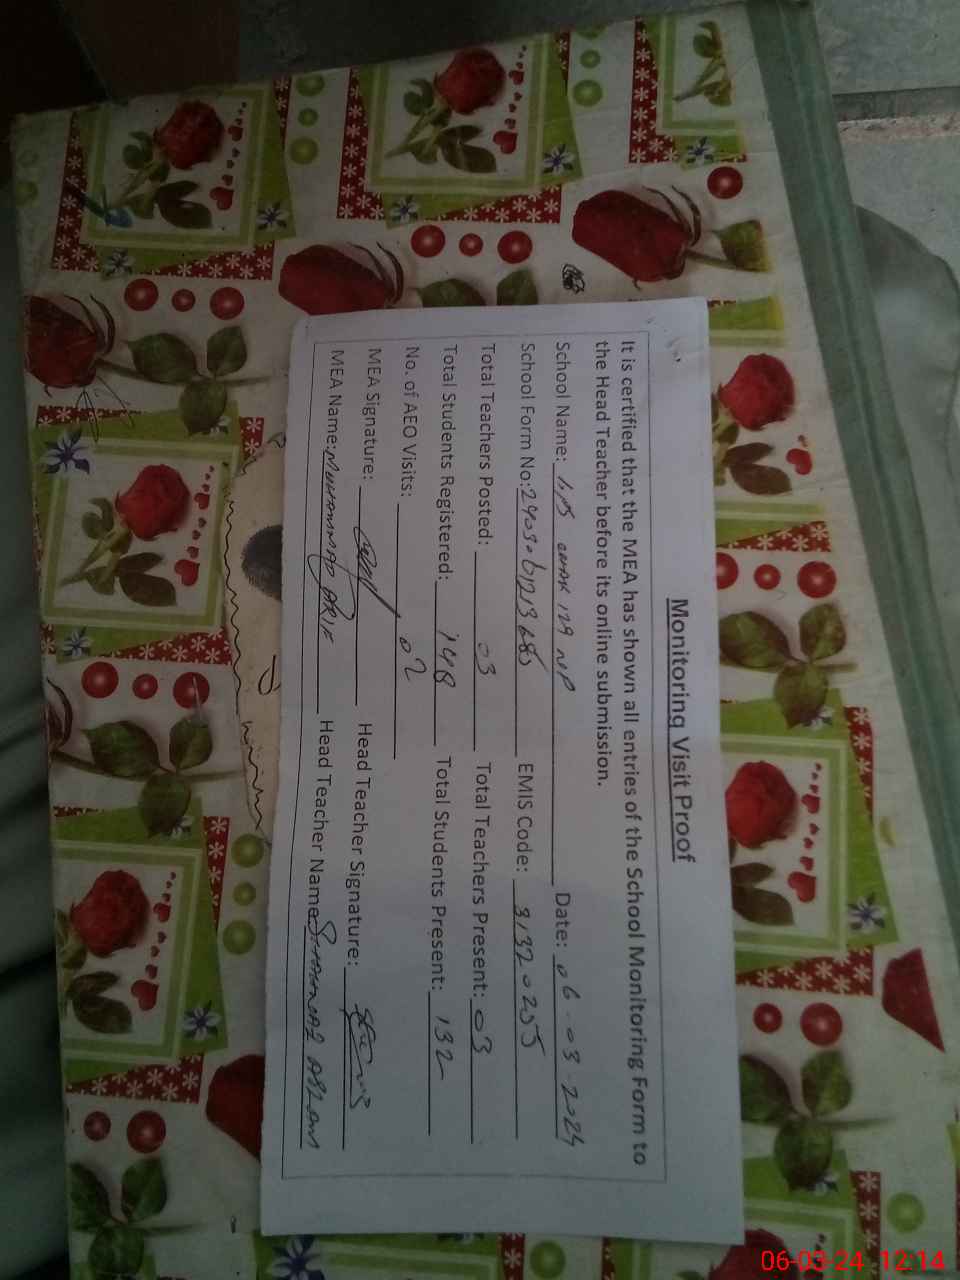 Monitoring Visit Proof
It is certified that the MEA has shown all entries of the School Monitoring Form to
the Head Teacher before its online submission.
School Name: 129 NP Date: 06-03-2024
School Form No: EMIS Code: 31320255
Total Teachers Posted: 03 Total Teachers Present: 03
Total Students Registered: 148 Total Students Present: 132
No. of AEO Visits: 02
MEA Signature: Head Teacher Signature:
MEA Name: MUHAMMAD ARIF Head Teacher Name:
06-03-24 12:14